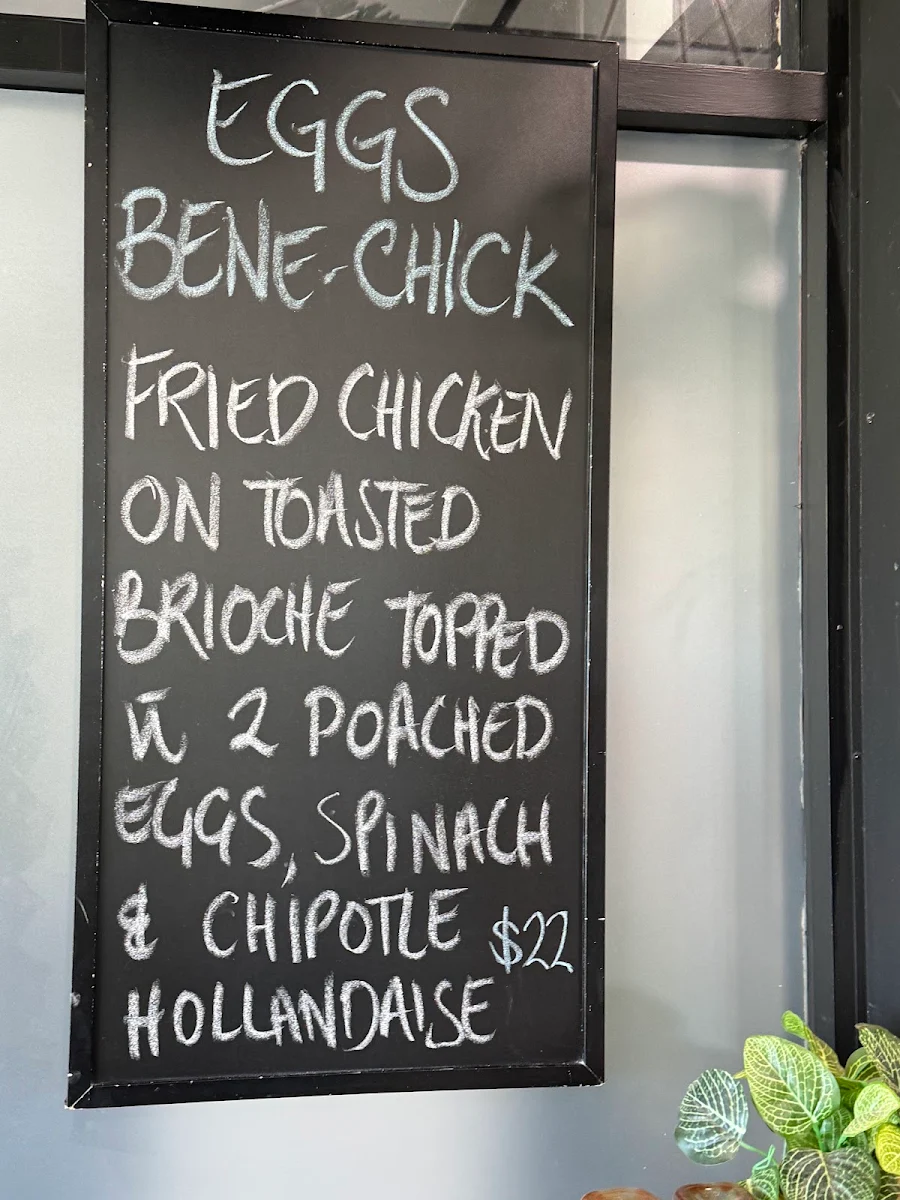 EGGS
BENE-CHICK
FRIED CHICKEN
ON TOASTED
BRIOCHE TOPPED
w̄ 2 POACHED
EGGS, SPINACH
& CHIPOTLE
$22
HOLLANDAISE